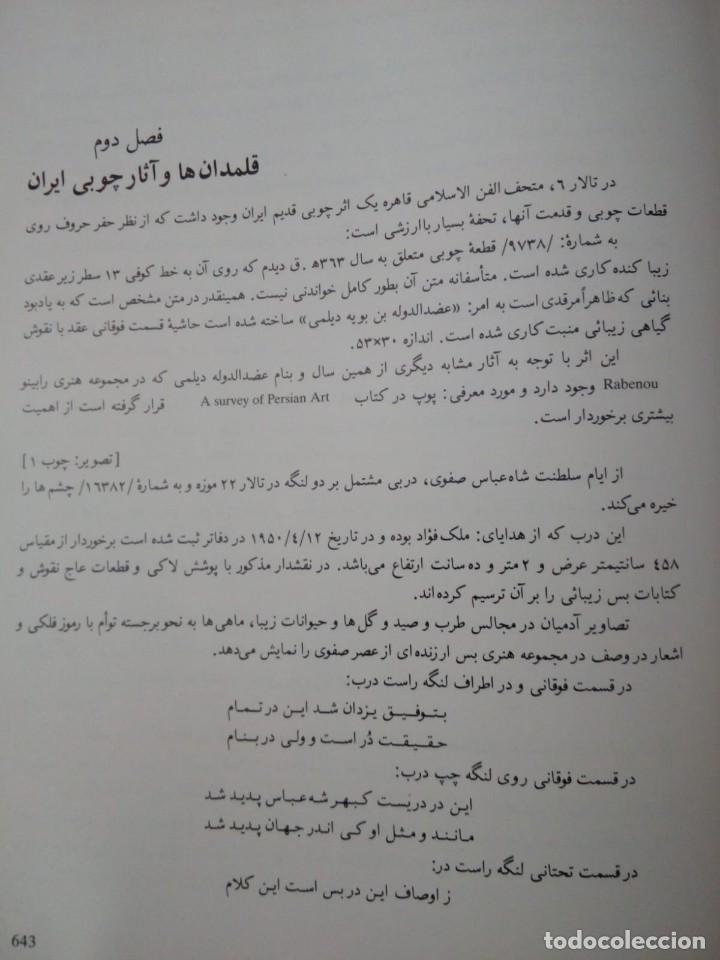 فصل دوم
قلمدان ها و آثار چوبی ایران
در تالار ۶، متحف الفن الاسلامی قاهره یک اثر چوبی قدیم ایران وجود داشت که از نظر حفر حروف روی
قطعات چوبی و قدمت آنها، تحفهٔ بسیار باارزشی است:
به شمارهٔ: /۹۷۳۸/ قطعهٔ چوبی متعلق به سال ۳۶۳ه‍ .ق دیدم که روی آن به خط کوفی ۱۳ سطر زیر عقدی
زیبا کنده کاری شده است. متأسفانه متن آن بطور کامل خواندنی نیست. همینقدر در متن مشخص است که به یادبود
بنائی که ظاهراً مرقدی است به امر: «عضدالدوله بن بویه دیلمی» ساخته شده است حاشیهٔ قسمت فوقانی عقد با نقوش
گیاهی زیبائی منبت کاری شده است. اندازه ۳۰×۵۳.
این اثر با توجه به آثار مشابه دیگری از همین سال و بنام عضدالدوله دیلمی که در مجموعه هنری رابینو
Rabenou وجود دارد و مورد معرفی: پوپ در کتاب A survey of Persian Art قرار گرفته است از اهمیت
بیشتری برخوردار است.
[تصویر: چوب ۱]
از ایام سلطنت شاه عباس صفوی، دربی مشتمل بر دو لنگه در تالار ۲۲ موزه و به شمارهٔ /۱۶۳۸۲/ چشم ها را
خیره می‌کند.
این درب که از هدایای: ملک فؤاد بوده و در تاریخ ۱۹۵۰/۴/۱۲ در دفاتر ثبت شده است برخوردار از مقیاس
۴۵۸ سانتیمتر عرض و ۲ متر و ده سانت ارتفاع می‌باشد. در نقشدار مذکور با پوشش لاکی و قطعات عاج نقوش و
کتابات بس زیبائی را بر آن ترسیم کرده‌اند.
تصاویر آدمیان در مجالس طرب و صید و گل‌ها و حیوانات زیبا، ماهی‌ها به نحو برجسته توأم با رموز فلکی و
اشعار در وصف در مجموعه هنری بس ارزنده ای از عصر صفوی را نمایش می‌دهد.
در قسمت فوقانی و در اطراف لنگه راست درب:
بتوفیق یزدان شد این در تمام
حقیقت دُر است و ولی در بنام
در قسمت فوقانی روی لنگه چپ درب:
این در دریست کبهر شه عباس پدید شد
مانند و مثل او کی اندر جهان پدید شد
در قسمت تحتانی لنگه راست در:
ز اوصاف این در بس است این کلام
643
todocoleccion
todocoleccion.net